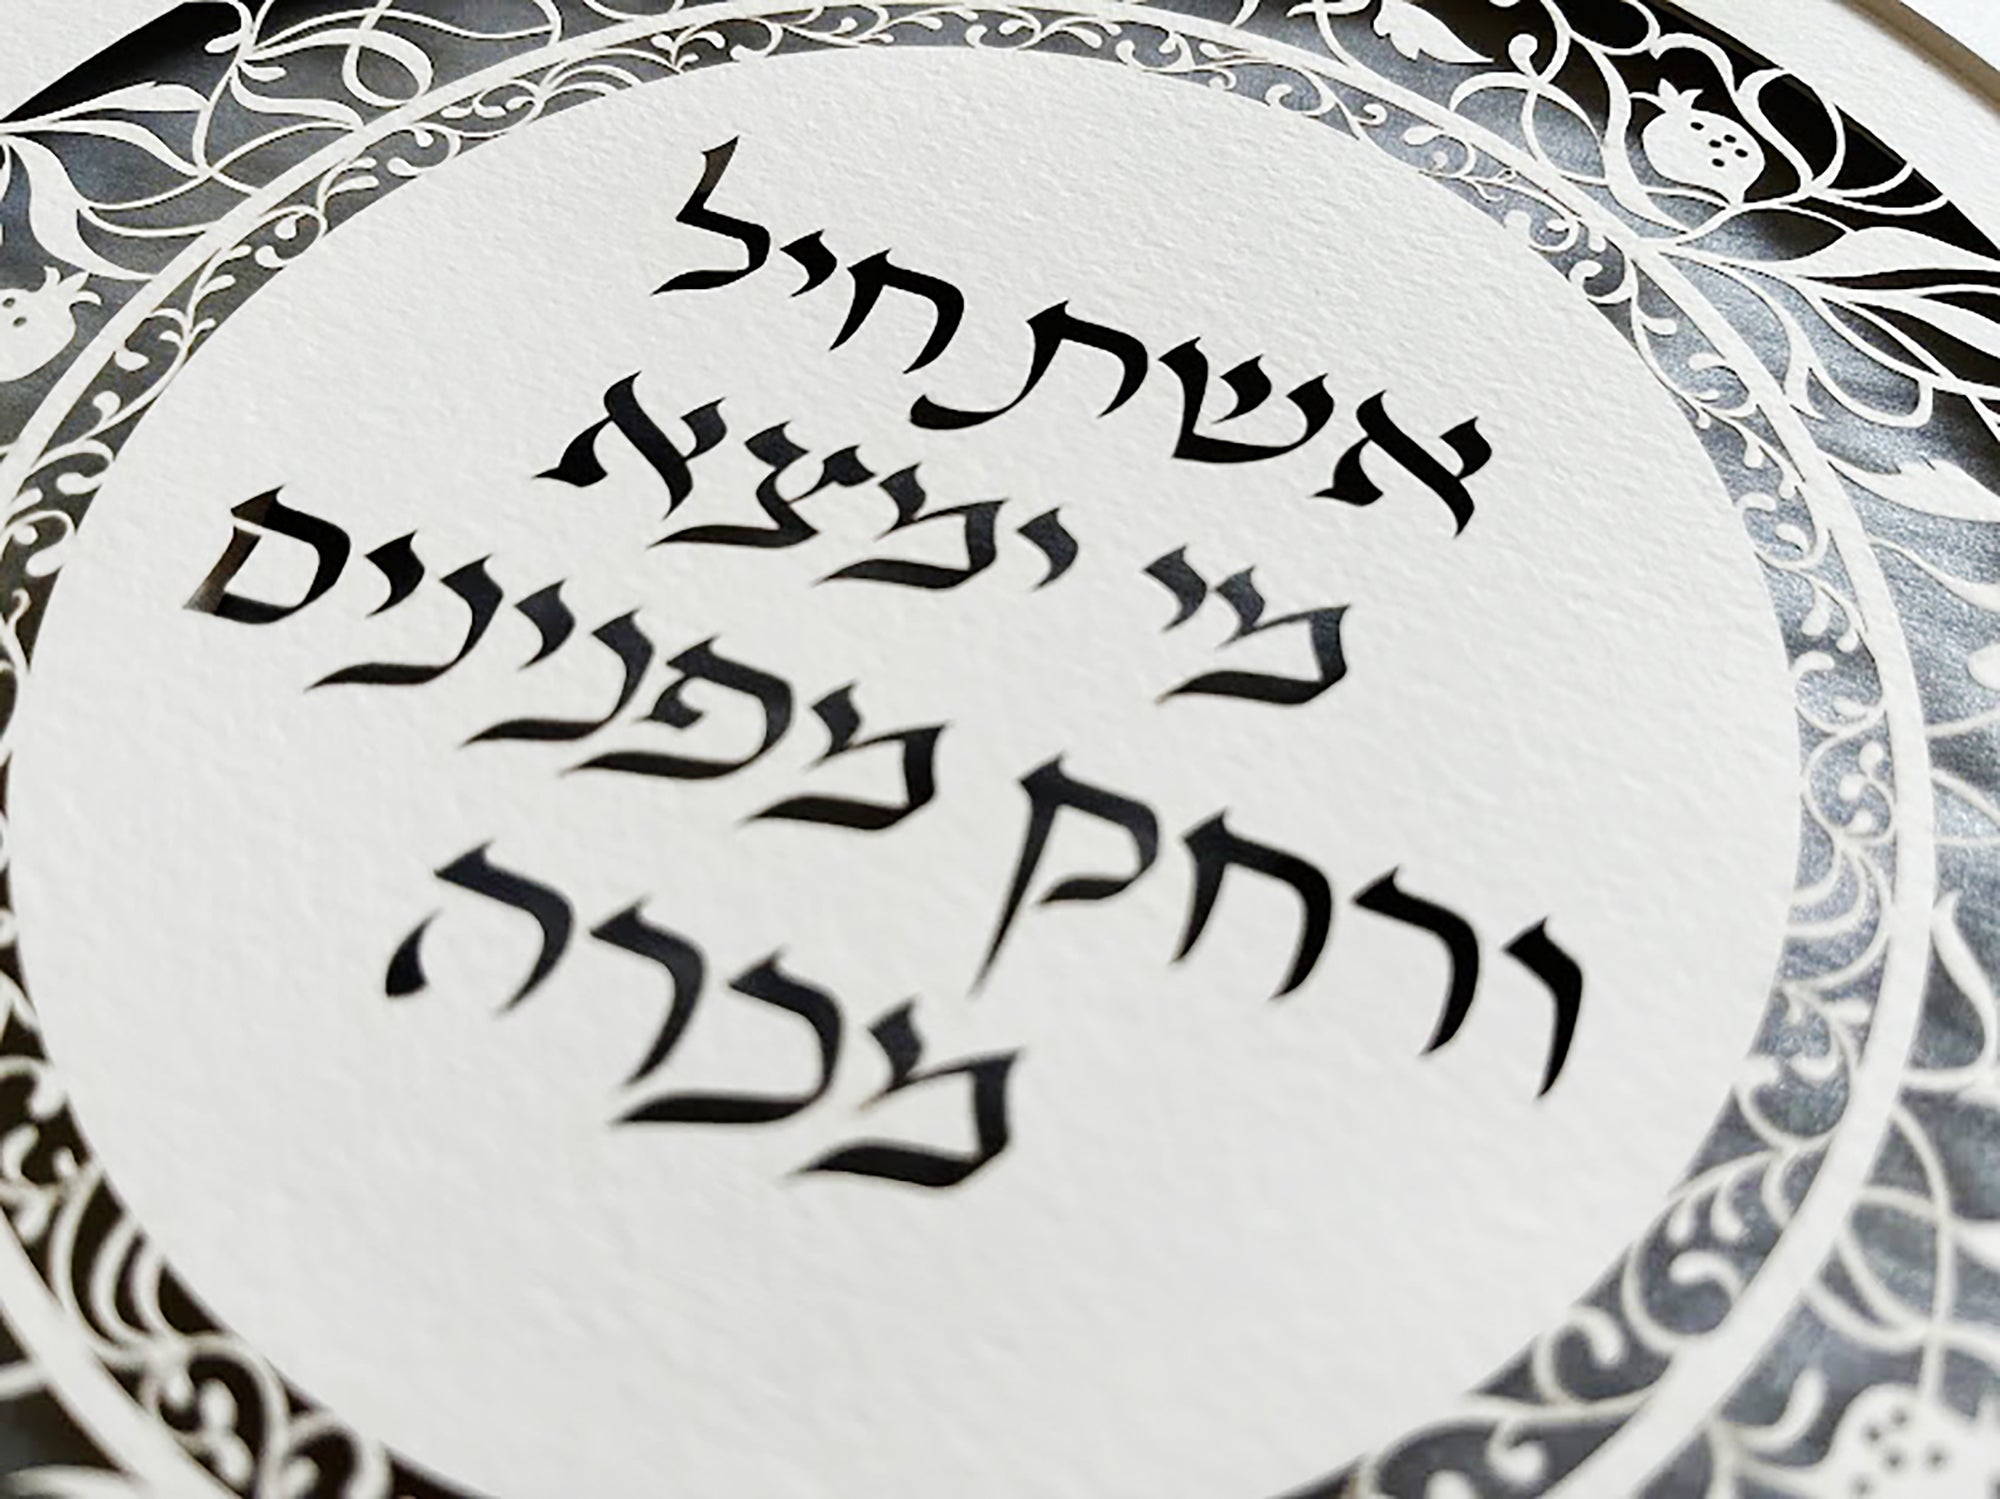 אשת חיל
מי ימצא
ורחק מפנינים
מכרה